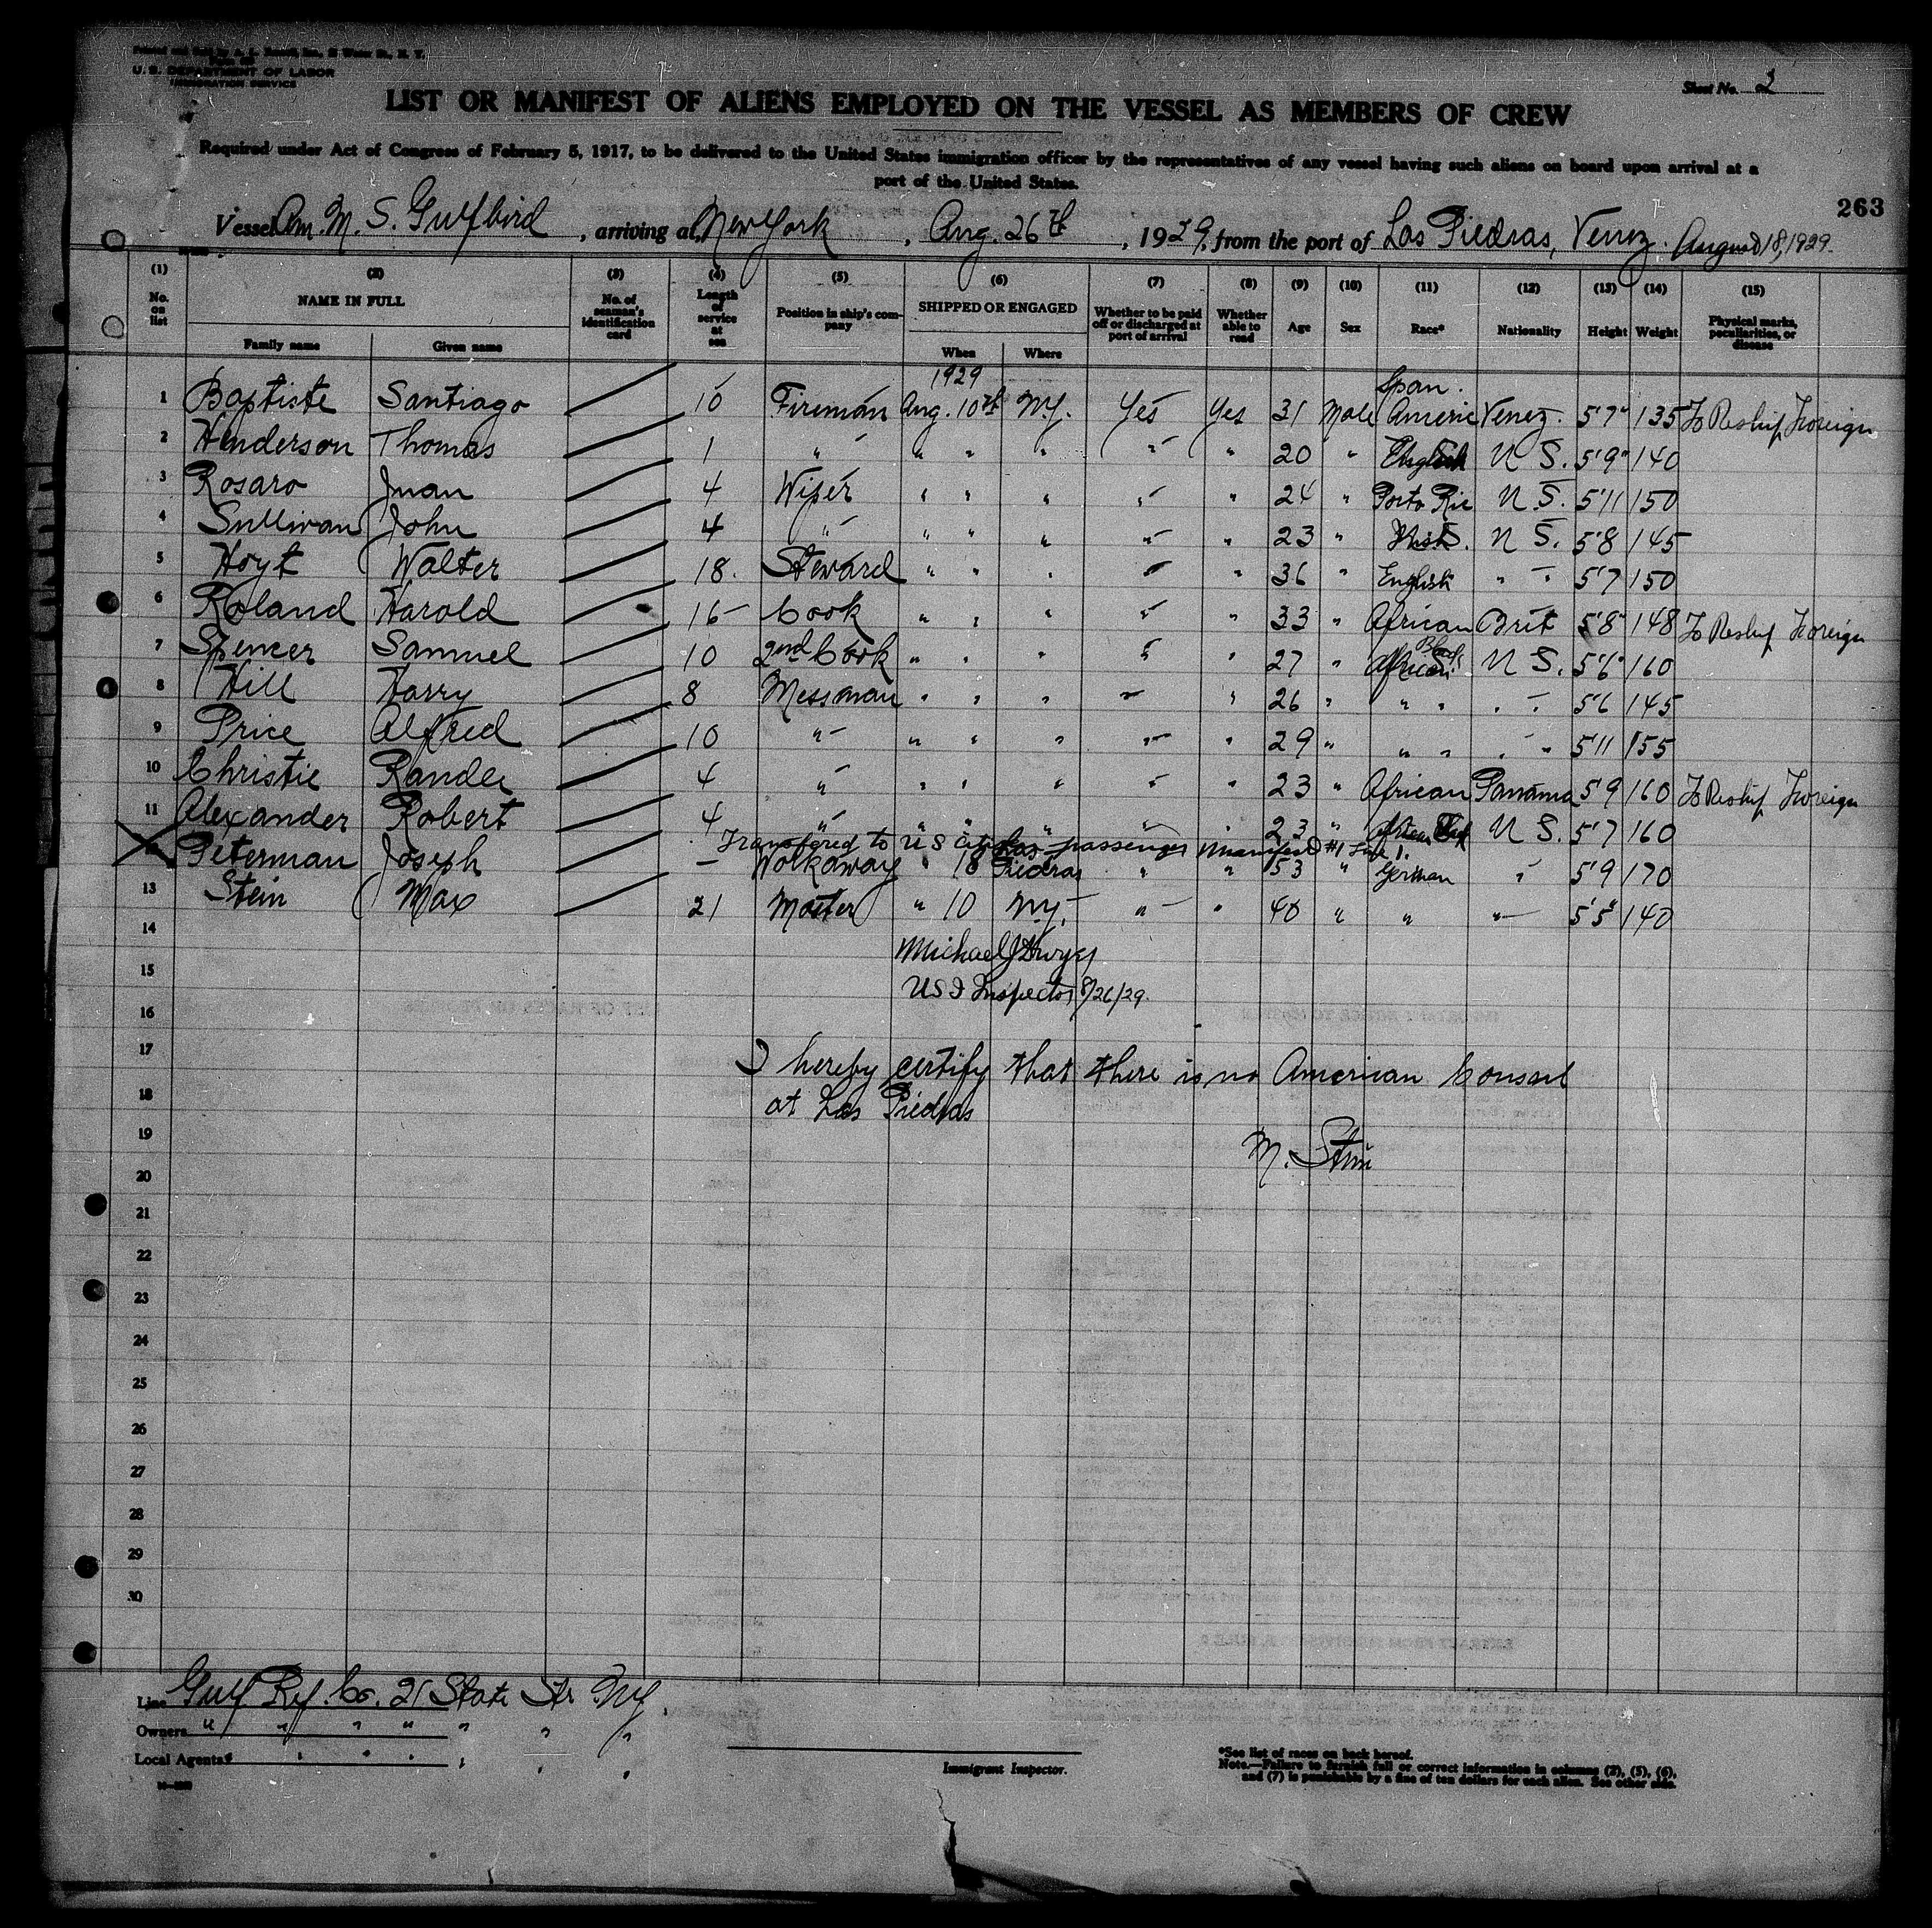 U. S. DEPARTMENT OF LABOR
IMMIGRATION SERVICE
Sheet No. 2
LIST OR MANIFEST OF ALIENS EMPLOYED ON THE VESSEL AS MEMBERS OF CREW
Required under Act of Congress of February 5, 1917, to be delivered to the United States immigration officer by the representatives of any vessel having such aliens on board upon arrival at a
port of the United States.
263
Vessel Am. M. S. Gulfbird, arriving at New York, Aug. 26th, 1929, from the port of Las Piedras, Venez. August 18, 1929.
(1) (2) (3) (4) (5) (6) (7) (8) (9) (10) (11) (12) (13) (14) (15)
No. on list NAME IN FULL Family name Given name No. of seaman's identification card Length of service at sea Position in ship's company SHIPPED OR ENGAGED When Where Whether to be paid off or discharged at port of arrival Whether able to read Age Sex Race* Nationality Height Weight Physical marks, peculiarities, or disease
1929 Span.
1 Baptiste Santiago 10 Fireman Aug. 10th N.Y. Yes Yes 31 Male Americ Venez. 5'7" 135 To Reship Foreign
2 Henderson Thomas 1 " " " " " " 20 " English U S. 5'9" 140
3 Rosaro Juan 4 Wiper " " " " " 24 " Porto Ric U S. 5'11 150
4 Sullivan John 4 " " " " " " 23 " U S. 5'8 145
5 Hoyt Walter 18. Steward " " " " " 36 " English " " 5'7 150
6 Roland Harold 16 Cook " " " " " 33 " African Brit 5'8" 148 To Reship Foreign
7 Spencer Samuel 10 2nd Cook " " " " " 27 " African Black U S. 5'6" 160
8 Hill Harry 8 Messman " " " " " 26 " " " " " 5'6 145
9 Price Alfred 10 " " " " " " 29 " " " " " 5'11 155
10 Christie Rander 4 " " " " " " 23 " African Panama 5'9 160 To Reship Foreign
11 Alexander Robert 4 " " " " " " 23 " African U S. 5'7 160
Transfered to U S Citz passenger Manifest #1 Line 1.
Peterman Joseph – Workaway " 18 Las Piedras " " 53 " German " 5'9 170
13 Stein Max 21 Master " 10 N.Y. " " 40 " " " 5'5" 140
14
Michael J Dwyer
15
USI Inspector 8/26/29.
16
17
I hereby certify that there is no American Consul
18
at Las Piedras
19
M. Stein
20
21
22
23
24
25
26
27
28
29
30
Line Gulf Ref. Co. 21 State St. N.Y.
Owners " " " " " " "
Local Agents " " " " " " "
Immigrant Inspector.
*See list of races on back hereof.
Note.—Failure to furnish full or correct information in columns (2), (5), (6),
and (7) is punishable by a fine of ten dollars for each alien. See other side.